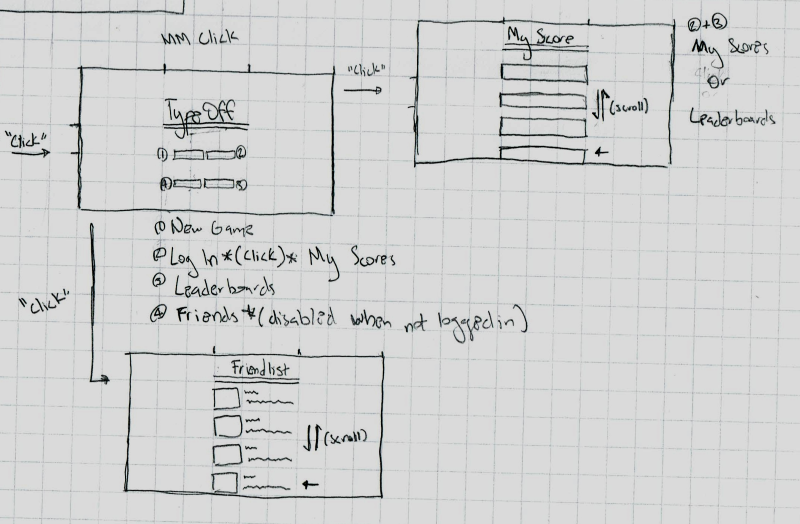 MM Click
"Click"
TypeOff
① ②
④ ③
"Click"
My Score
(scroll)
②+③
My Scores
Or
Leaderboards
① New Game
② Log In *(Click)* My Scores
③ Leaderboards
④ Friends *(disabled when not logged in)
"Click"
Friendlist
(scroll)